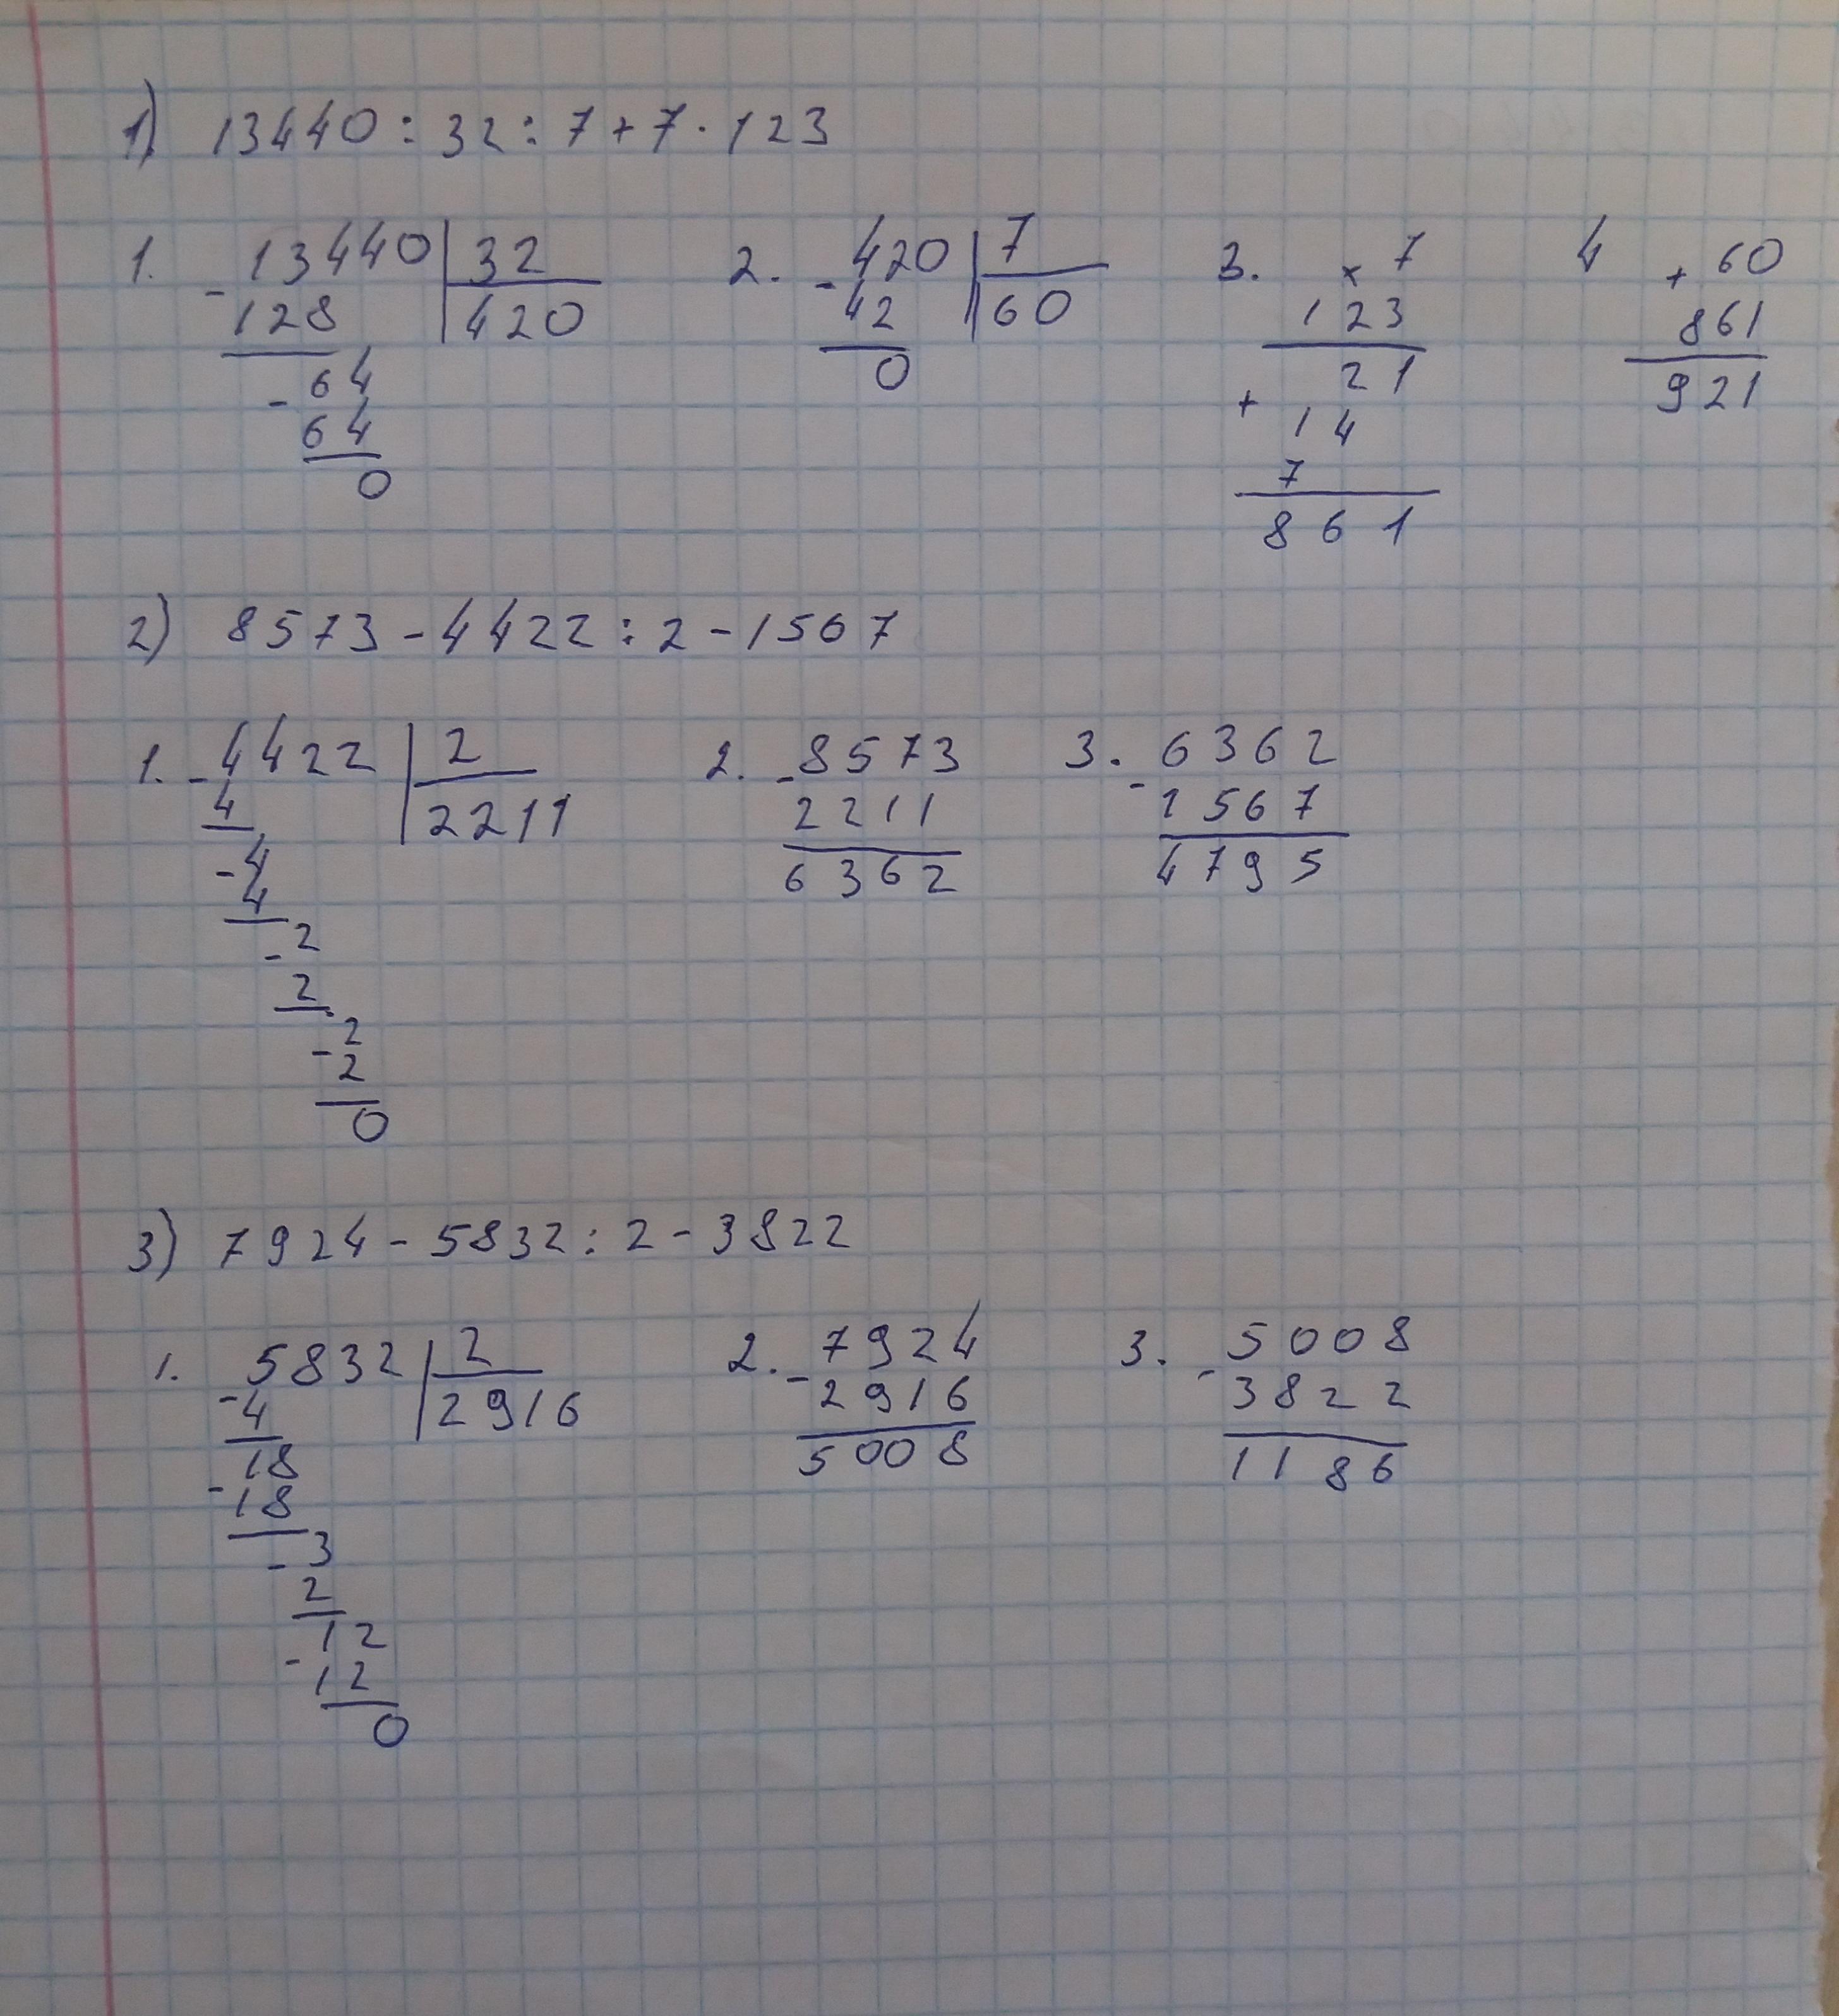 1) 13440 : 32 : 7 + 7 · 123
1. - 13440 | 32 2. - 420 | 7 3. × 7 4 + 60
128 420 42 60 123 861
- 64 0 21 921
64 + 14
0 7
861
2) 8573 - 4422 : 2 - 1567
1. - 4422 | 2 2. - 8573 3. - 6362
4 2211 2211 1567
- 4 6362 4795
4
- 2
2
- 2
2
0
3) 7924 - 5832 : 2 - 3822
1. - 5832 | 2 2. - 7924 3. - 5008
4 2916 2916 3822
- 18 5008 1186
18
- 3
2
- 12
12
0